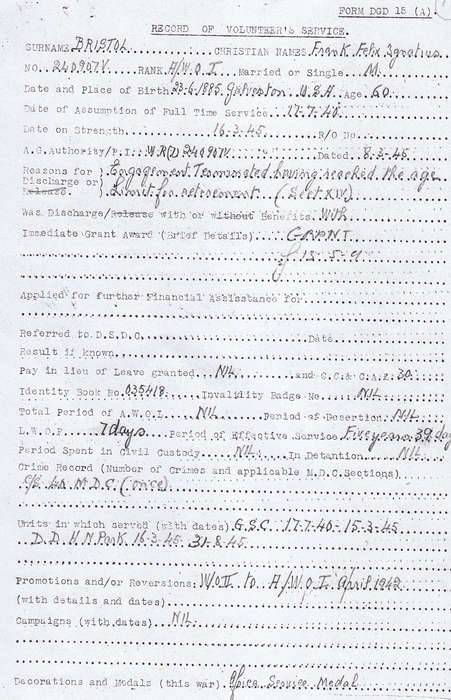 FORM DGD 15 (A)
RECORD OF VOLUNTEER'S SERVICE.
SURNAME BRISTOL CHRISTIAN NAMES Frank Felix Ignatius
NO. 240907V RANK A/W.O.I. Married or Single M
Date and Place of Birth 23-6-1885 Galveston U.S.A Age 60
Date of Assumption of Full Time Service 17-7-40
Date on Strength 16-3-45 R/O No
A.G.Authority/P.I.: W.R(D) 240907V Dated 8-3-45
Reasons for } Engagement Terminated having reached the age
Discharge or } limit for retirement (Sect XIV)
Release. }
Was Discharge/Release with or without Benefits With
Immediate Grant Award (Brief Details) GRANT
£ 18-5-
Applied for further Financial Assistance for
Referred to D.S.D.C. Date
Result if known
Pay in lieu of Leave granted NIL and C.C.& C.A.Z. 30
Identity Book No 035418 Invalility Badge No NIL
Total Period of A.W.O.L. NIL Period of Desertion NIL
L.W.O.P. 7 days Period of Effective Service Five years 39 day
Period Spent in Civil Custody NIL In Detantion NIL
Crime Record (Number of Crimes and applicable M.D.C.Sections)
M.D.C. (once)
Units in which served (with dates) G.S.C. 17-7-40 - 15-3-45
D.D. H.M Park 16-3-45 - 31-8-45
Promotions and/or Reversions: W.O.II to A/W.O.I. April 1942
(with details and dates)
Campaigns (with dates) NIL
Decorations and Medals (this war) Africa Service Medal